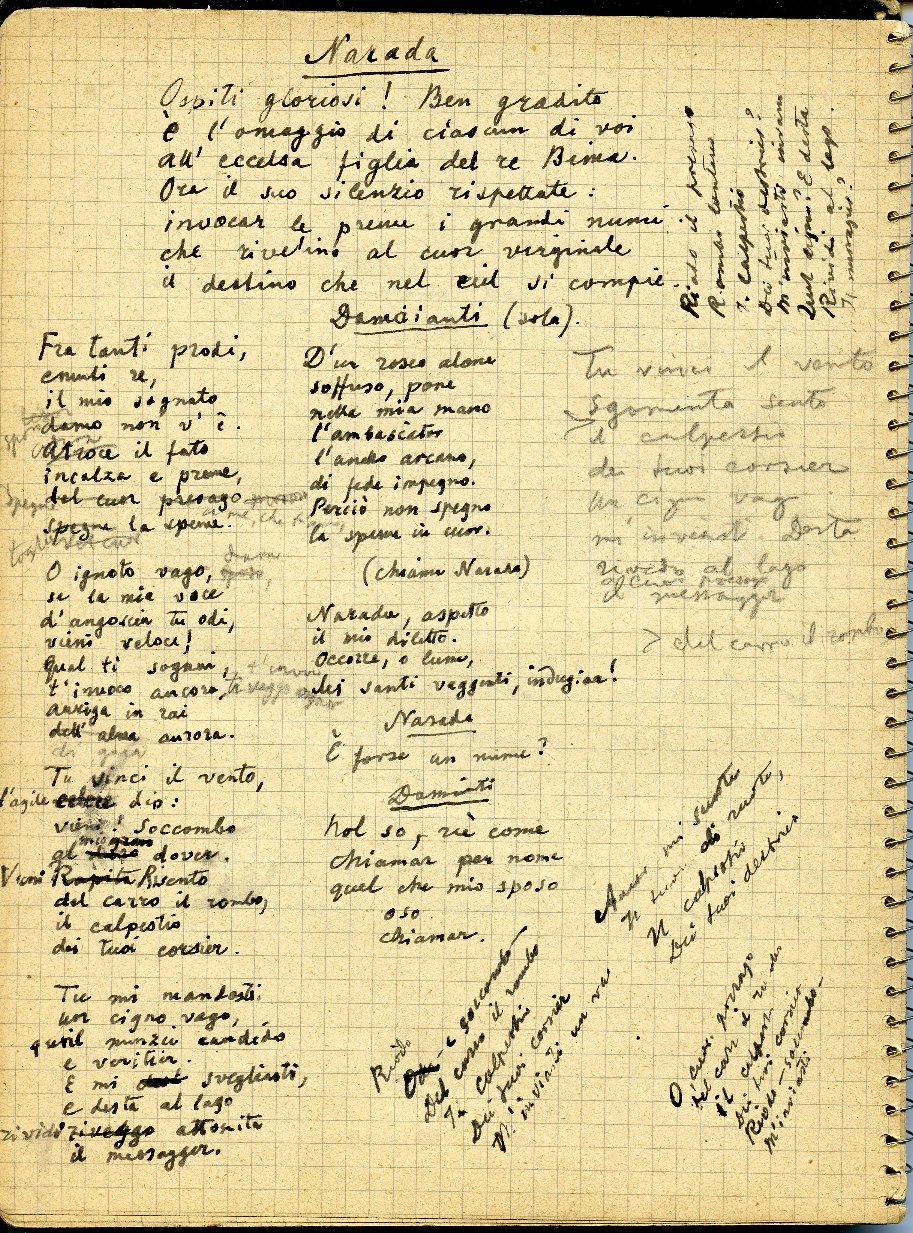 Narada
Ospiti gloriosi! Ben gradito
è l'omaggio di ciascun di voi
all' eccelsa figlia del re Bima.
Ora il suo silenzio rispettate:
invocar le preme i grandi numi
che rivelino al cuor verginale
il destino che nel ciel si compie.
Damaianti (sola).
Fra tanti prodi,
cnunti re,
il mio sognato
damo non v'è.
Atroce il fato
incalza e preme,
del cuor presago
spegne la speme.
O ignoto vago,
se la mia voce
d'angoscia tu odi,
vieni veloce!
Qual ti sognai,
t'invoco ancora,
auriga in rai
dell' alma aurora.
Tu vinci il vento,
l'agile dio:
vieni! Soccombo
al mio gran dover.
Vieni Rapita Risento
del carro il rombo,
il calpestio
dei tuoi corsier.
Tu mi mandasti
un cigno vago,
qual nunzio candido
e veritier.
E mi svegliasti,
e desta al lago
rividi riveggo attonita
il messagger.
D'un roseo alone
soffuso, pone
nella mia mano
l'ambasciator
l'anello arcano,
di fede impegno.
Perciò non spegno
la speme in cuor.
(chiama Narada)
Narada, aspetto
il mio diletto.
Occorre, o lume,
dei santi veggenti, indugiar!
Narada
È forse un nume?
Damianti
Nol so, nè come
chiamar per nome
quel che mio sposo
oso
chiamar.
Riodo il
Rombo lontano
Il calpestio
Dei tuoi destrier?
M'inviasti
Quel cigno? E desta
Rividi al lago
Il messagger?
Tu vinci il vento
Sgomenta sento
il calpestio
dei tuoi corsier
Un cigno vago
mi inviasti. Desta
rividi al lago
il messagger
> del carro il rombo
mi
Il tuon di ruote,
Il calpestio
Dei tuoi destrier
Riodo
e soccombo
Del carro il rombo
Il calpestio
Dei tuoi corsier
M'inviasti un va
O cuor presago
del carr
il calpestio
Dei tuoi corsier
Riodo - soccombo -
M'inviasti